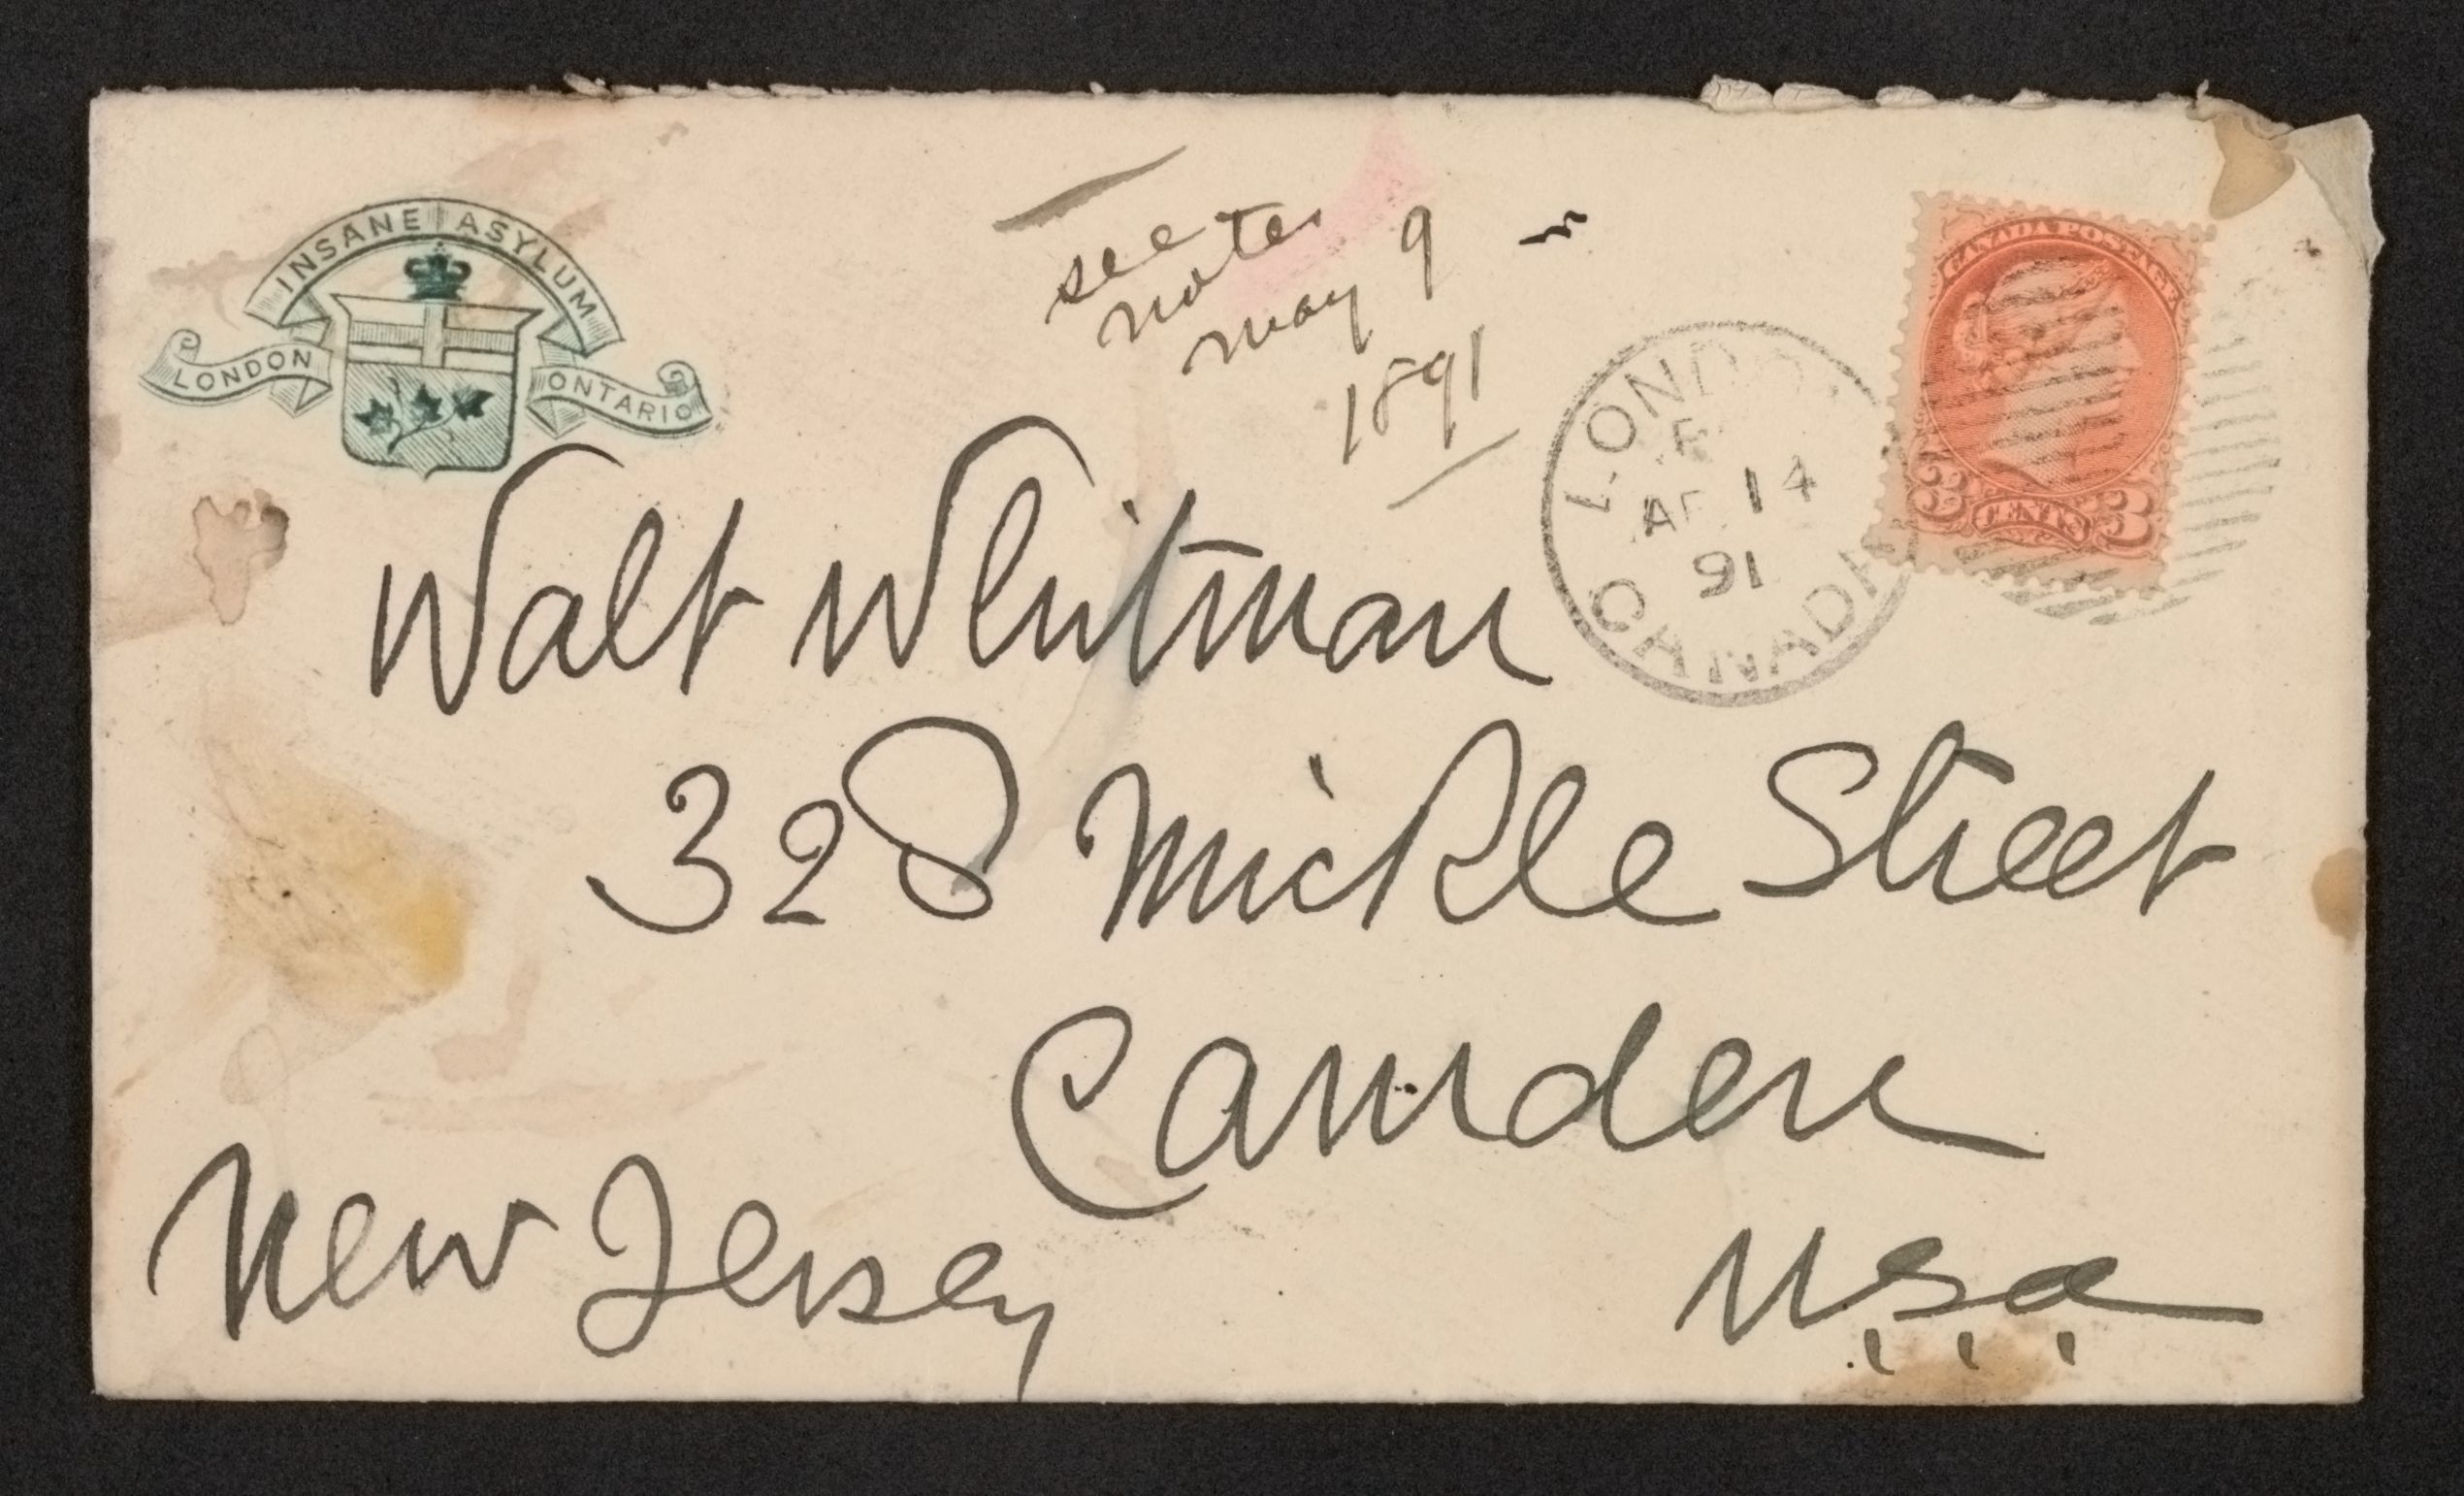 INSANE ASYLUM
LONDON
ONTARIO
see
notes
May 9
1891
CANADA POSTAGE
3 CENTS 3
LONDON
AP 14
91
CANADA
Walt Whitman
328 Mickle Street
Camden
New Jersey
U.S.a.